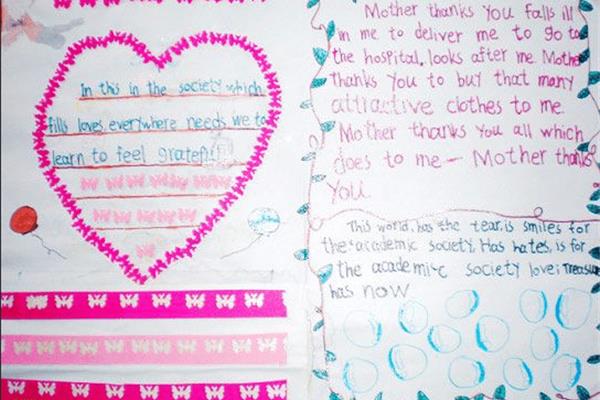 In this in the society which
fills loves everywhere needs we to
learn to feel grateful
Mother thanks you falls ill
in me to deliver me to go to
the hospital, looks after me Mothe
thanks you to buy that many
attractive clothes to me
Mother thanks you all which
does to me — Mother thanks
you
This world, has the tear, is smiles for
the academic society. Has hates, is for
the academic society love; Treasure
has now